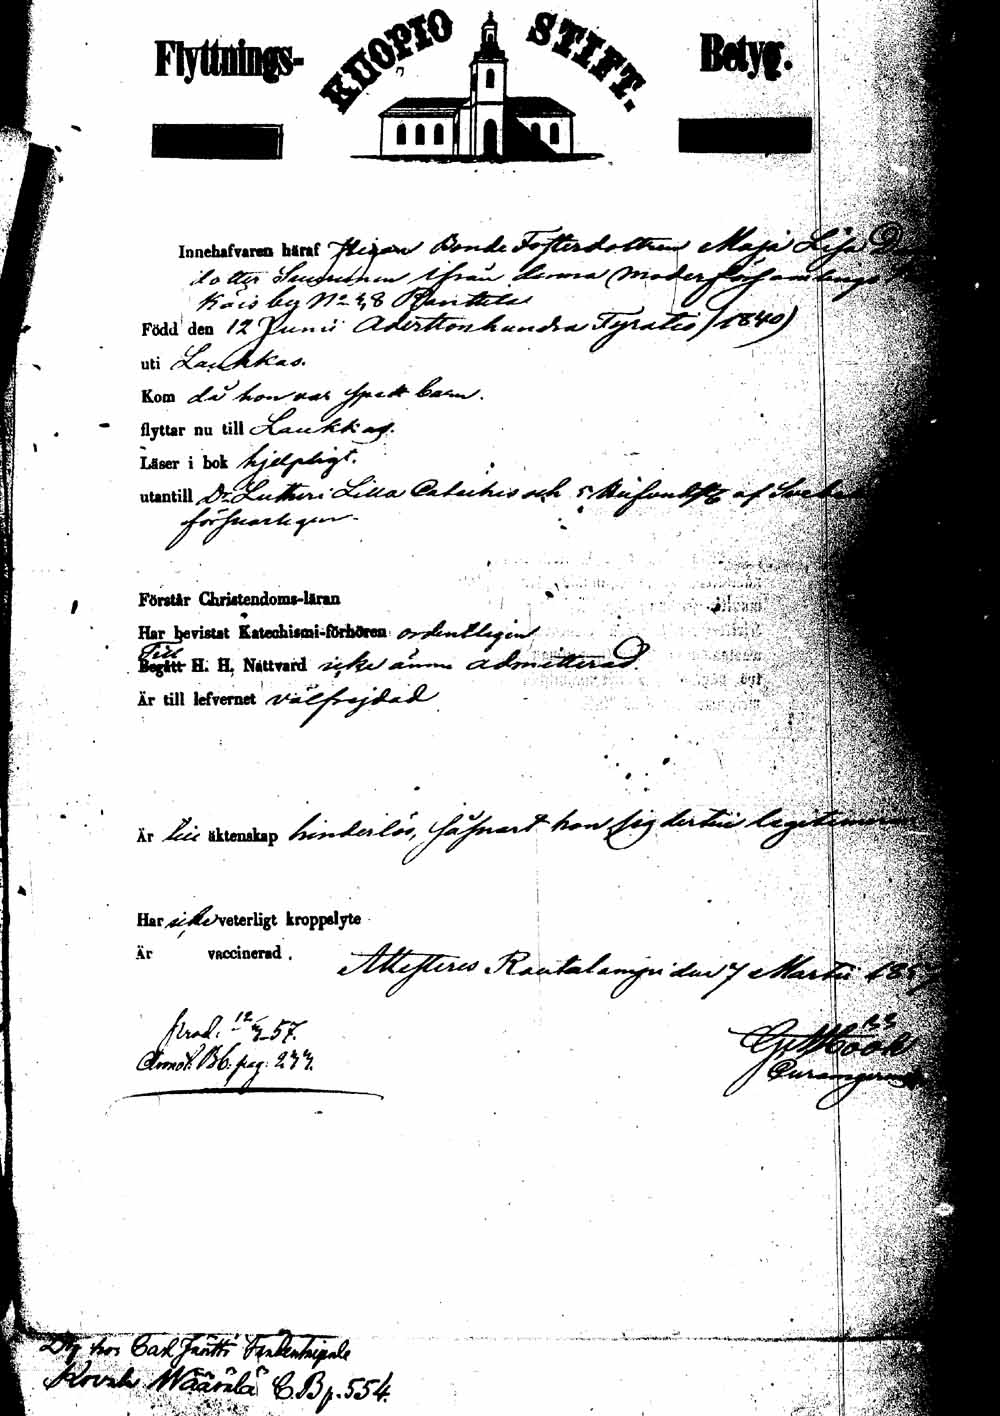 Flyttnings- KUOPIO STIFT. Betyg.
Innehafvaren häraf Bonde Fosterdottren Maja Lisa
dotter ifrån denna Moderförsamlings
by No 38
Född den 12 Junii Adertonhundra Fyratio (1840)
uti Laukkas.
Kom då hon var spätt barn.
flyttar nu till Laukkas.
Läser i bok hjelpligt.
utantill Dr Lutheri Lilla Cateches och af
försvarligen.
Förstår Christendoms-läran
Har bevistat Katechismi-förhören ordentligen
Till
Begått H. H. Nattvard icke ännu admitterad.
Är till lefvernet välfrejdad
Är till äktenskap hinderlös, såsnart hon sig dertill legitimerar
Har icke veterligt kroppslyte
Är vaccinerad.
Attesteras Rautalampi den 7 Martii 185
Prod. 12/4 57.
Annot. B6. pag. 277.
Höök
Carl
C.B p. 554.